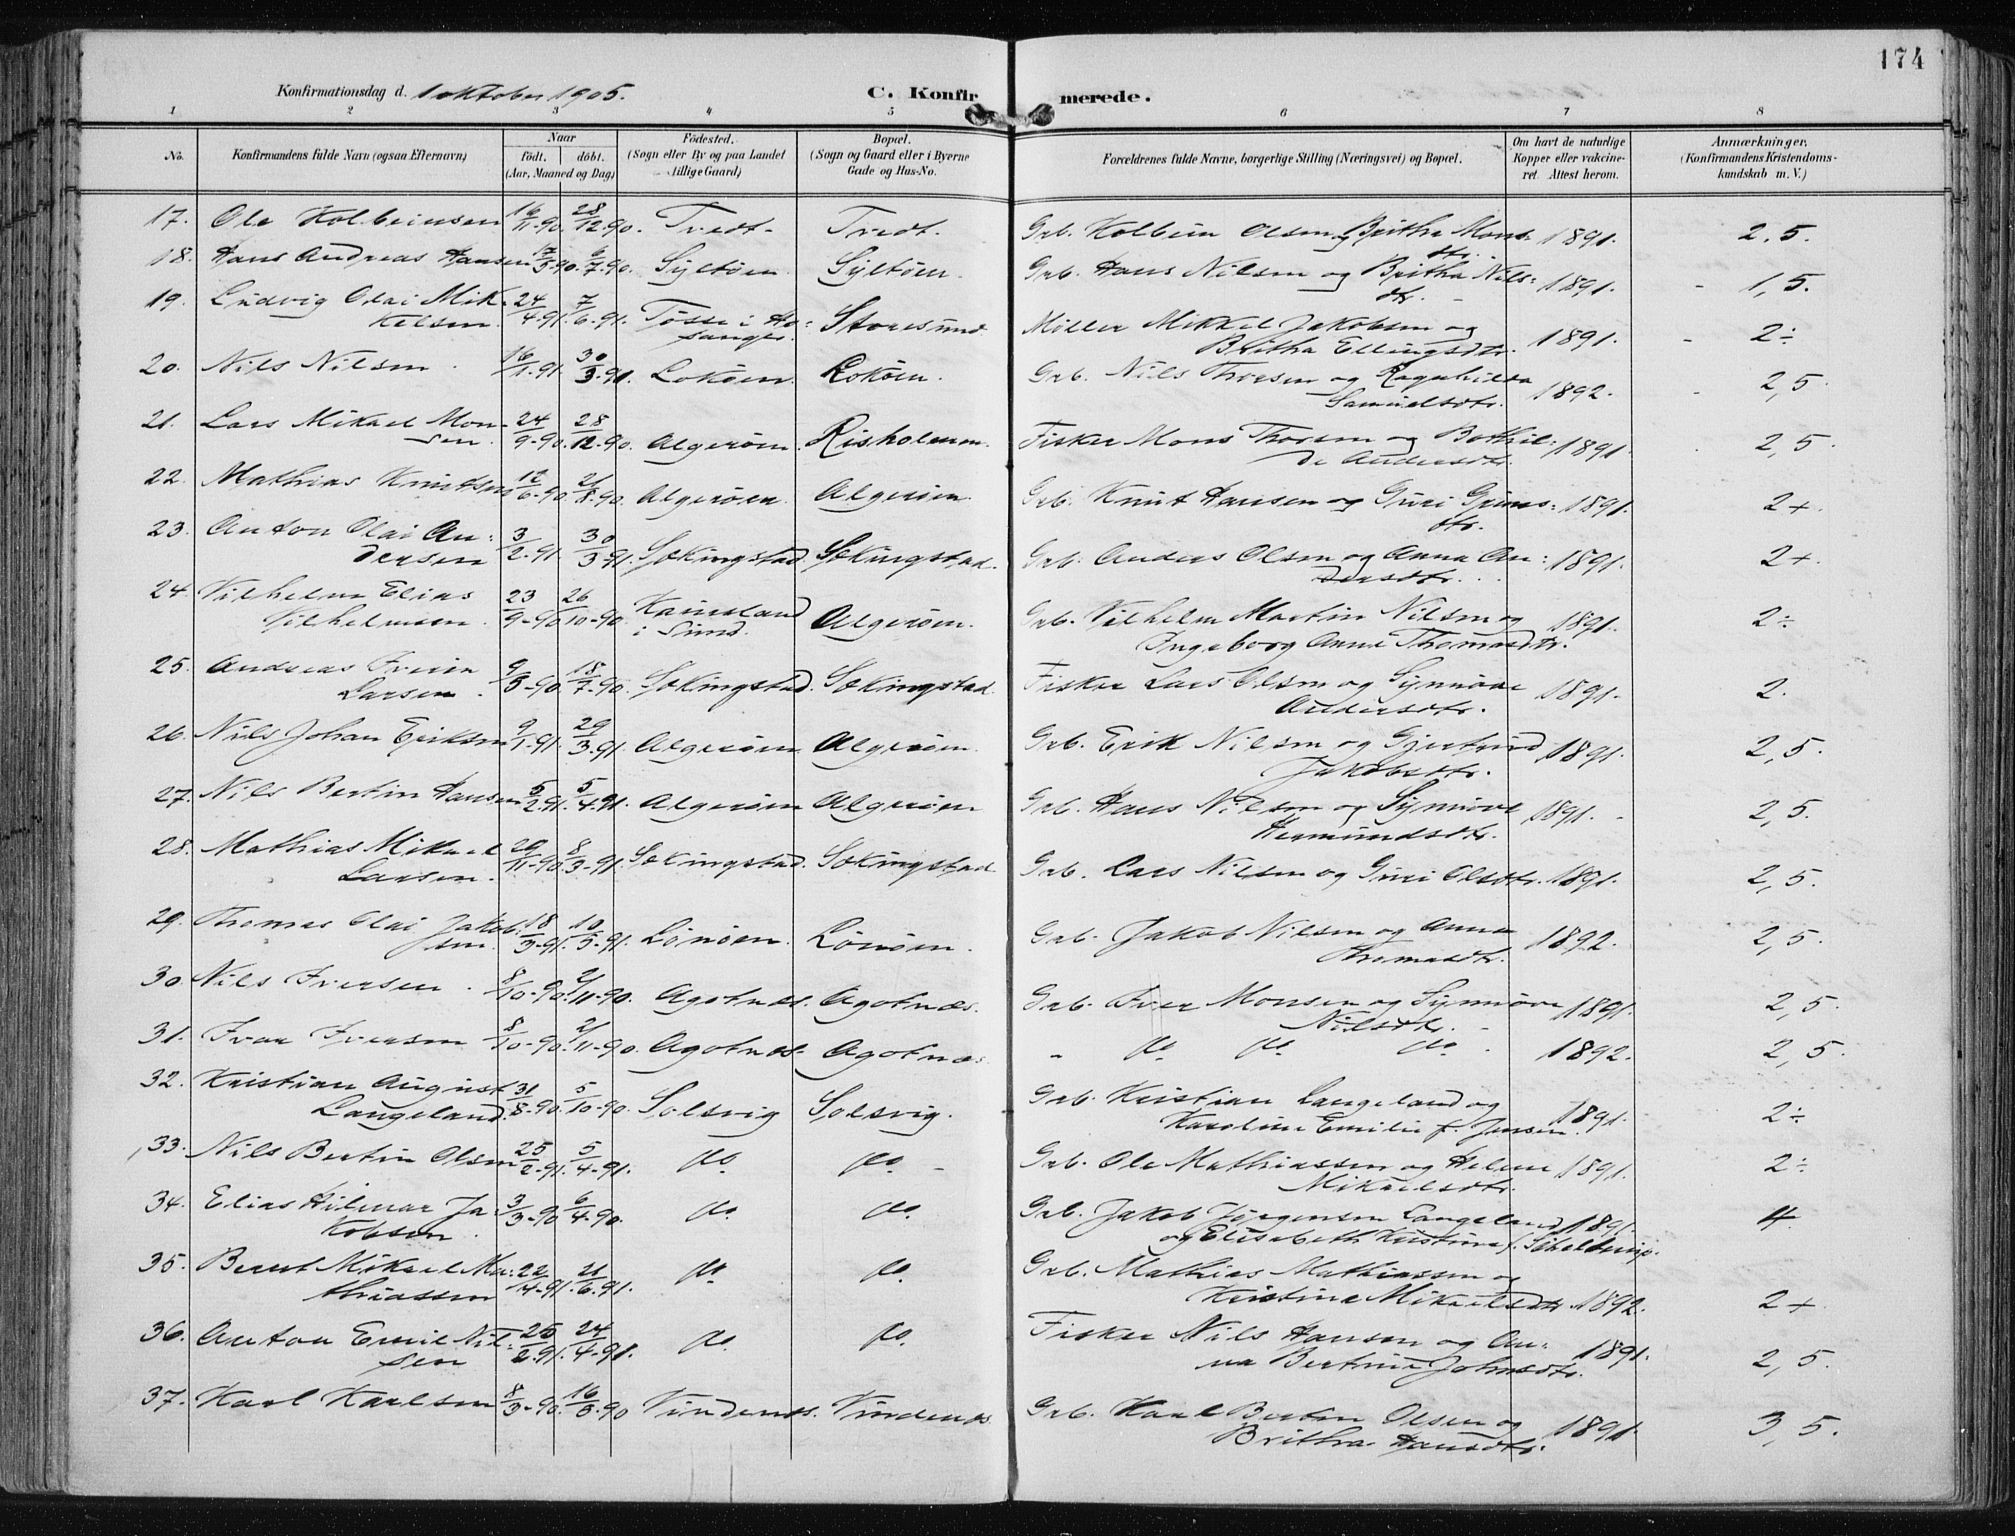 174
Konfirmationsdag d. 1 oktober 1905.
C. Konfirmerede.
1 2 3 4 5 6 7 8
No. Konfirmandens fulde Navn (ogsaa Efternavn) Naar født. døbt. (Aar, Maaned og Dag) Fødested. (Sogn eller By og paa Landet tillige Gaard) Bopæl. (Sogn og Gaard eller i Byerne Gade og Hus-No. Forældrenes fulde Navne, borgerlige Stilling (Næringsvei) og Bopæl. Om havt de naturlige Kopper eller vaccineret. Attest herom. Anmærkninger. (Konfirmandens Kristendomskundskab m. V.)
17. Ole Kolbeinsen 16/11-90. 28/12-90. Tvedt. Tvedt. Grb. Kolbein Olsen og Britha Monsdtr. 1891. 2,5.
18. Hans Andreas Hansen 17/5-90. 6/7-90. Syltøen. Syltøen. Grb. Hans Nilsen og Britha Nilsdtr. 1891. 1,5.
19. Ludvig Olai Mikkelsen. 24/4-91. 7/6-91. Tosse i Hosanger. Storesund. Møller Mikkel Jakobsen og Britha Ellingsdtr. 1891. 2÷
20. Nils Nilsen. 16/1-91. 30/3-91. Lokøen. Lokøen. Grb. Nils Thorsen og Ragnhilda Samuelsdtr. 1892. 2,5.
21. Lars Mikael Monsen. 24/9-90. 28/12-90. Algerøen. Risholmen. Fisker Mons Thorsen og Bothilde Andersdtr. 1891. 2,5
22. Mathias Knutsen 12/6-90. 21/8-90. Algerøen. Algerøen. Grb. Knut Hansen og Guri Gunnsdtr. 1891. 2+
23. Anton Olai Andersen 3/2-91. 30/3-91. Sekingstad. Sekingstad. Grb. Anders Olsen og Anna Andersdtr. 1891. 2+
24. Vilhelm Elias Vilhelmsen. 23/9-90 26/10-90. Kausland i Sund. Algerøen. Grb. Vilhelm Martin Nilsen og Ingeborg Anne Thomasdtr. 1891. 2÷
25. Andreas Iverin Larsen. 9/5-90. 18/7-90. Sekingstad. Sekingstad. Fisker Lars Olsen og Synnøve Andersdtr. 1891. 2.
26. Nils Johan Eriksen 9/1-91. 29/3-91. Algerøen. Algerøen. Grb. Erik Nilsen og Gjertrud Jakobsdtr. 1891. 2,5.
27. Nils Bertin Hansen 5/2-91. 5/4-91. Algerøen Algerøen Grb. Hans Nilsen og Synnøve Hermundsdtr. 1891. 2,5.
28. Mathias Mikael Larsen. 29/11-90. 8/3-91. Sekingstad. Sekingstad Grb. Lars Nilsen og Guri Olsdtr. 1891. 2,5.
29. Thomas Olai Jakobsen. 18/3-91. 10/5-91. Lønøen. Lønøen. Grb. Jakob Nilsen og Anna Thomasdtr. 1892. 2,5.
30. Nils Iversen. 8/10-90. 2/11-90. Agotnæs. Agotnæs. Grb. Iver Monsen og Synnøve Nilsdtr. 1891. 2,5
31. Ivar Iversen 8/10-90. 2/11-90. Agotnæs. Agotnæs. " do. do. do. 1892. 2,5.
32. Kristian August Langeland. 31/8-90. 5/10-90. Solsvig Solsvig. Grb. Kristian Langeland og Karoline Emilie f. Jansen. 1891. 2÷
33. Nils Bertin Olsen 25/2-91. 5/4-91. do. do. Grb. Ole Mathiassen og Helene Mikaelsdtr. 1891. 2÷
34. Elias Hilmar Jakobsen. 3/3-90 6/4-90. do. do. Grb. Jakob Jørgensen Langeland og Elisabeth Kristine f. 1891. 4
35. Bernt Mikael Mathiassen 22/4-91. 21/6-91. do. do. Grb. Mathias Mathiassen og Kristine Mikaelsdtr. 1892. 2+
36. Anton Emil Nilsen 25/2-91. 24/4-91. do. do. Fisker Nils Hansen og Anna Bertine Johnsdtr. 1891. 2,5.
37. Karl Karlsen 8/3-90. 16/5-90 Vindenæs. Vindenæs. Grb. Karl Bertin Olsen og Britha Hansdtr. 1891 3,5.